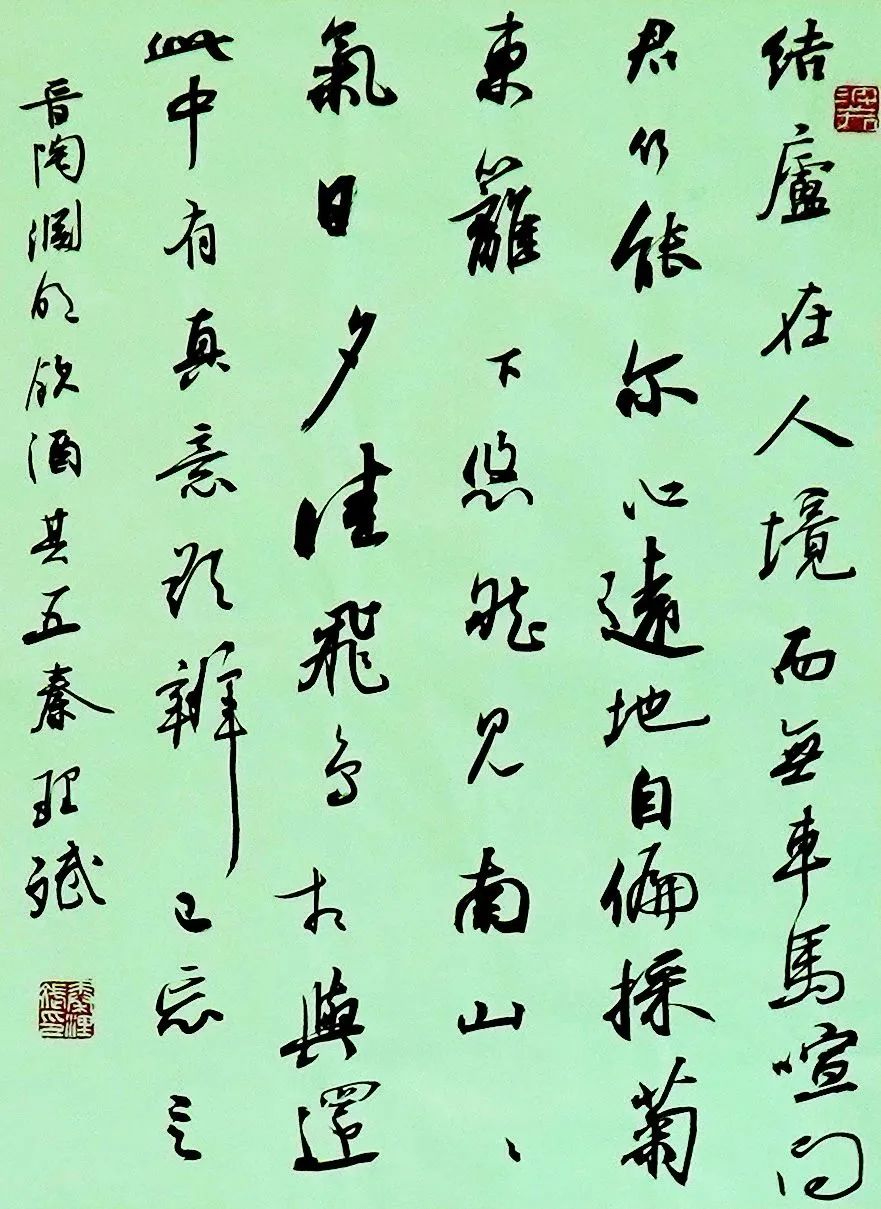 結廬在人境而無車馬喧问
君何能尔心遠地自偏採菊
東籬下悠然見南山、
氣日夕佳飛鳥相與還
此中有真意欲辨已忘言
晋陶淵明飲酒其五秦理斌